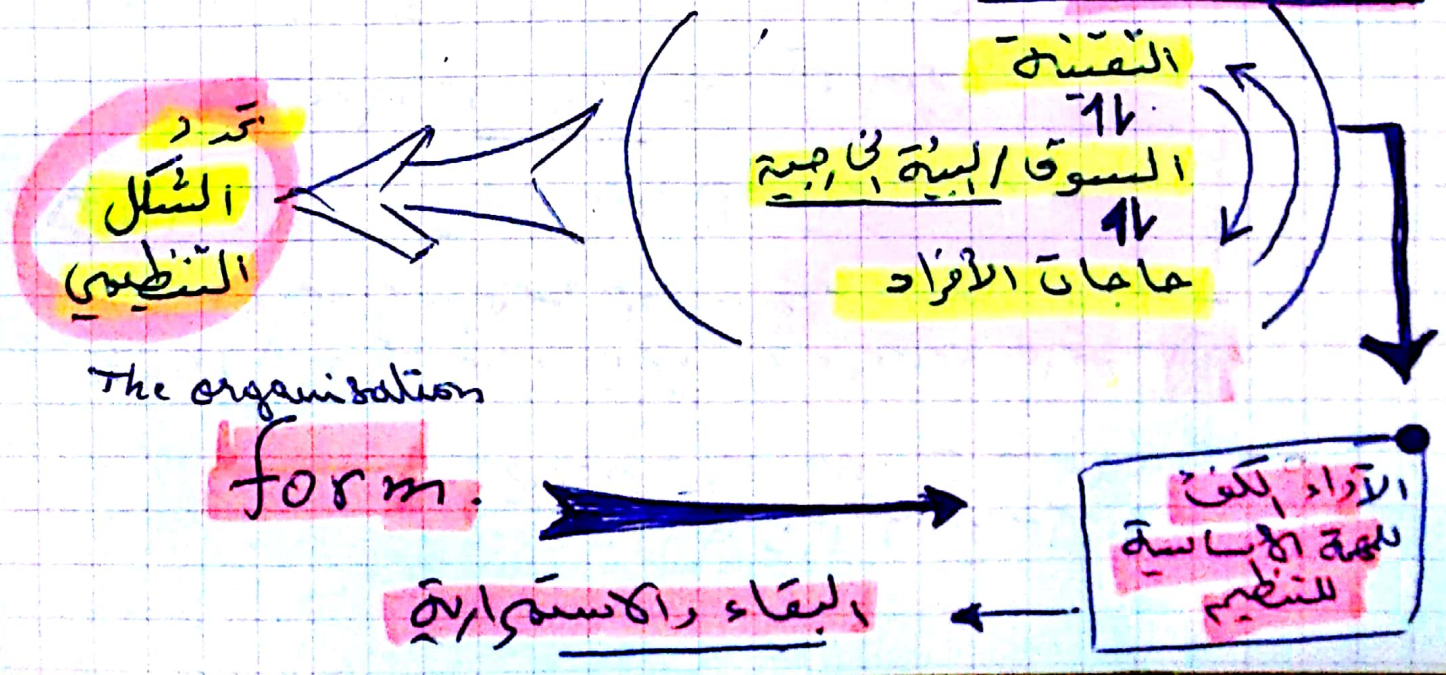 التقنية
السوق / البيئة الخارجية
حاجات الأفراد
تحدد
الشكل
التنظيمي
The organisation
form.
الآداء الكفئ
للمهمة الاساسية
للتنظيم
البقاء والاستمرارية